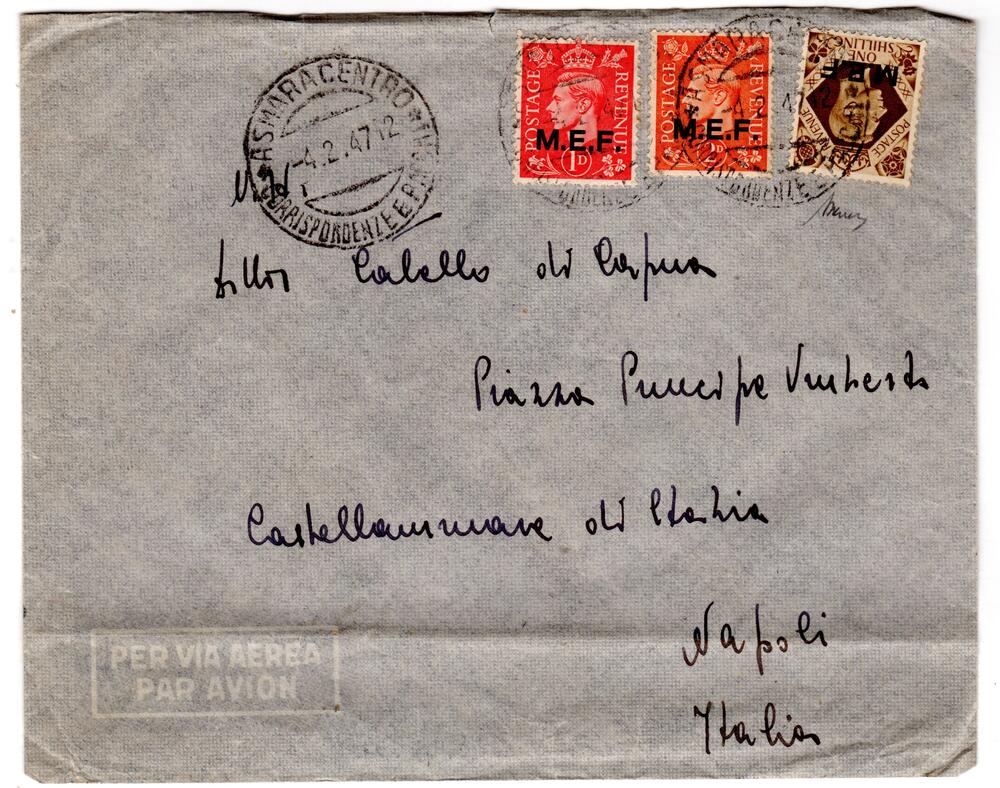 ASMARA CENTRO
-4.2.47 12
CORRISPONDENZE E P
POSTAGE REVENUE
M.E.F.
1D
POSTAGE REVENUE
M.E.F.
D
ONE SHILLING
M.E.F.
POSTAGE REVENUE
Calello di Capua
Piazza Principe Umberto
Castellammare di Stabia
Napoli
Italia
PER VIA AEREA
PAR AVION